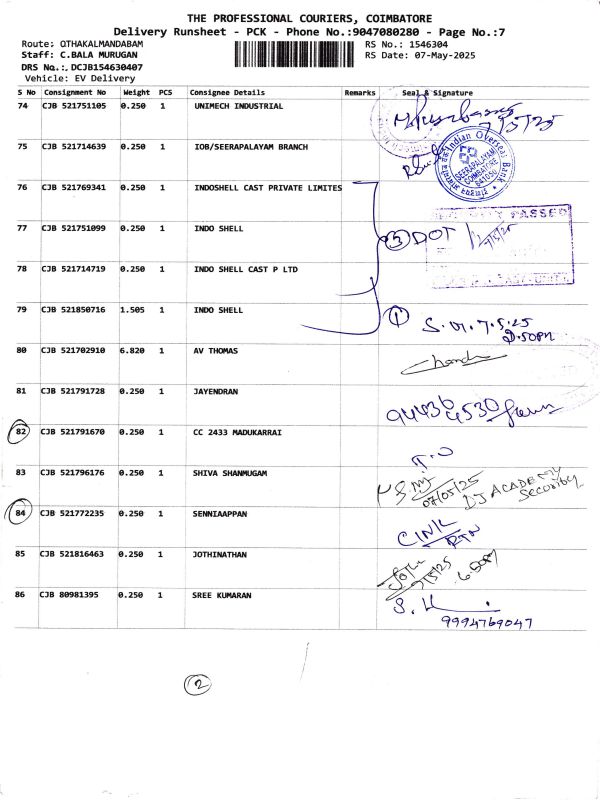 THE PROFESSIONAL COURIERS, COIMBATORE
Delivery Runsheet - PCK - Phone No.:9047080280 - Page No.:7
Route: OTHAKALMANDABAM RS No.: 1546304
Staff: C.BALA MURUGAN RS Date: 07-May-2025
DRS No.:.DCJB154630407
Vehicle: EV Delivery
S No Consignment No Weight PCS Consignee Details Remarks Seal & Signature
74 CJB 521751105 0.250 1 UNIMECH INDUSTRIAL 7/5/25
75 CJB 521714639 0.250 1 IOB/SEERAPALAYAM BRANCH
Indian Overseas Bank SEERAPALAYAM COIMBATORE
76 CJB 521769341 0.250 1 INDOSHELL CAST PRIVATE LIMITES
PASSED
77 CJB 521751099 0.250 1 INDO SHELL ③ DOT 7/5/25
78 CJB 521714719 0.250 1 INDO SHELL CAST P LTD
79 CJB 521850716 1.505 1 INDO SHELL ① S.M.7.5.25
2.50PM
80 CJB 521702910 6.820 1 AV THOMAS
81 CJB 521791728 0.250 1 JAYENDRAN 94436
4530
82 CJB 521791670 0.250 1 CC 2433 MADUKARRAI
83 CJB 521796176 0.250 1 SHIVA SHANMUGAM 07/05/25 DJ ACADEMY
Security
84 CJB 521772235 0.250 1 SENNIAAPPAN
RTN
85 CJB 521816463 0.250 1 JOTHINATHAN 7/5/25 6.50PM
86 CJB 80981395 0.250 1 SREE KUMARAN
9994769047
②